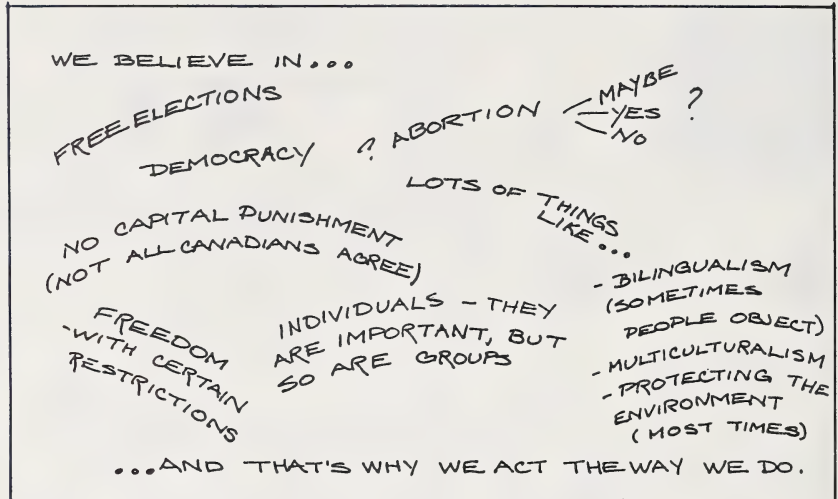 WE BELIEVE IN...
FREE ELECTIONS
DEMOCRACY
? ABORTION
MAYBE
YES
NO
?
LOTS OF THINGS
LIKE...
NO CAPITAL PUNISHMENT
(NOT ALL CANADIANS AGREE)
FREEDOM
-WITH CERTAIN
RESTRICTIONS
INDIVIDUALS - THEY
ARE IMPORTANT, BUT
SO ARE GROUPS
- BILINGUALISM
(SOMETIMES
PEOPLE OBJECT)
- MULTICULTURALISM
- PROTECTING THE
ENVIRONMENT
(MOST TIMES)
...AND THAT'S WHY WE ACT THE WAY WE DO.